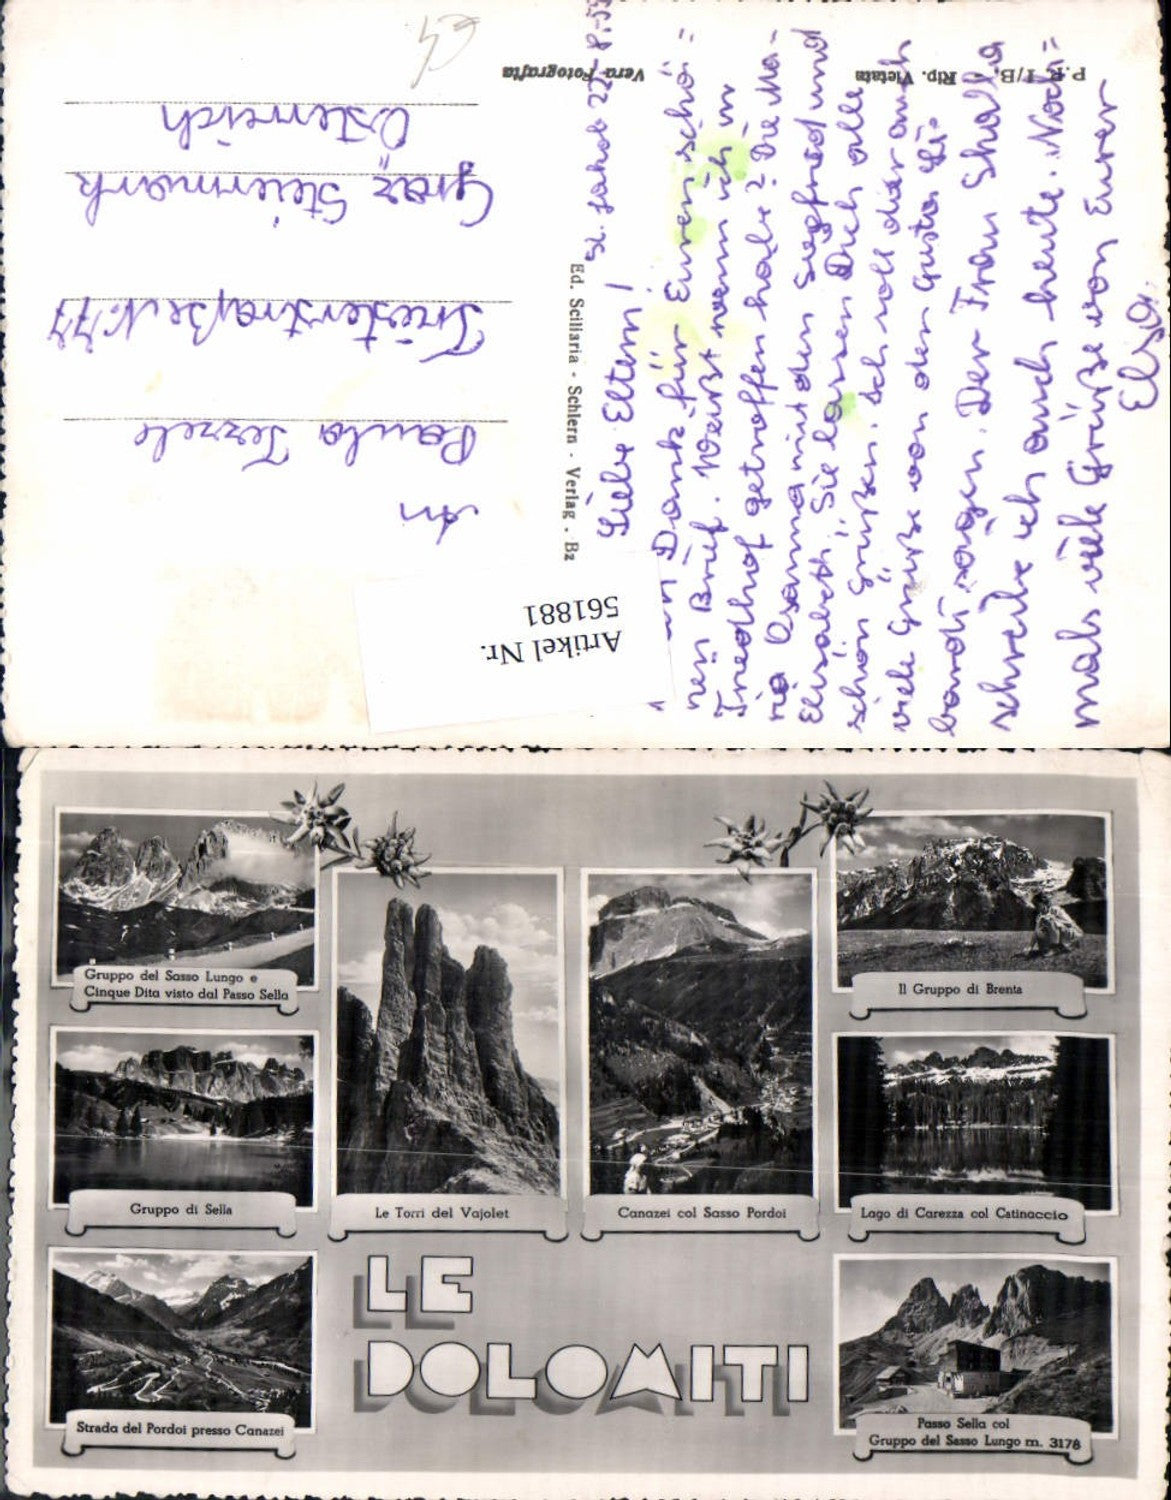 Vera Fotografia
Rip. Vietata
P. P. I/B
Ed. Sciliaria - Schlern - Verlag - Bz
An
Paula Tezzele
Triesterstraße No 77
Graz Steiermark
Österreich
St. Jakob 22.-8.-55
Liebe Eltern!
Dank für Euren schö=
nen Brief. Weißt wenn ich im
Friedhof getroffen habe? Die Ma-
ria Osanna mit den Siegfried und
Elisabeth, Sie lassen Dich alle
schön Grüßen. Ich soll dir auch
viele Grüße von den Gusta
sagen. Der Frau
schreibe ich auch heute. Noch=
mals viele Grüße von Eurer
Artikel Nr.
561881
Gruppo del Sasso Lungo e
Cinque Dita visto dal Passo Sella
Il Gruppo di Brenta
Gruppo di Sella
Le Torri del Vajolet
Canazei col Sasso Pordoi
Lago di Carezza col Catinaccio
LE
DOLOMITI
Strada del Pordoi presso Canazei
Passo Sella col
Gruppo del Sasso Lungo m. 3178